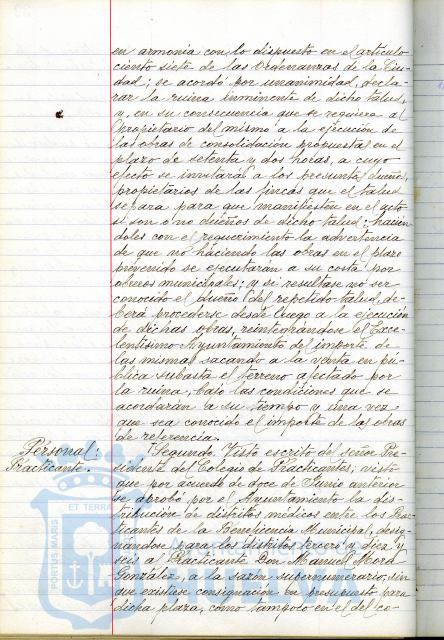 en armonía con lo dispuesto en el artículo
ciento siete de las Ordenanzas de la Ciu-
dad; se acordó por unanimidad, decla-
rar la ruina inminente de dicho talud,
y, en su consecuencia que se requiera al
propietario del mismo a la ejecución de
las obras de consolidación propuestas en el
plazo de setenta y dos horas, a cuyo
efecto se invitarán a los presuntos dueños
propietarios de las fincas que el talud
separa para que manifiesten en el acto
si son o no dueños de dicho talud; hacién-
doles con el requerimiento la advertencia
de que no haciendo las obras en el plazo
prevenido se ejecutarán a su costa por
obreros municipales; y si resultase no ser
conocido el dueño del repetido talud, de-
berá procederse desde luego a la ejecución
de dichas obras, reintegrándose el Exce-
lentísimo Ayuntamiento del importe de
las mismas sacando a la venta en pú-
blica subasta el terreno afectado por
la ruina, bajo las condiciones que se
acordarán a su tiempo y una vez
que sea conocido el importe de las obras
de referencia.
Personal:
Practicante.
Segundo. Visto escrito del señor Pre-
sidente del Colegio de Practicantes; visto
que por acuerdo de doce de Junio anterior
se aprobó por el Ayuntamiento la dis-
tribución de distritos médicos entre los Prac-
ticantes de la Beneficencia Municipal, desig-
nándose para los distritos tercero y diez y
seis a Practicante Don Manuel
González, a la sazón supernumerario, sin
que existiese consignación en presupuesto para
dicha plaza, como tampoco en el del co-
PORTUS MARIS
ET TERRA